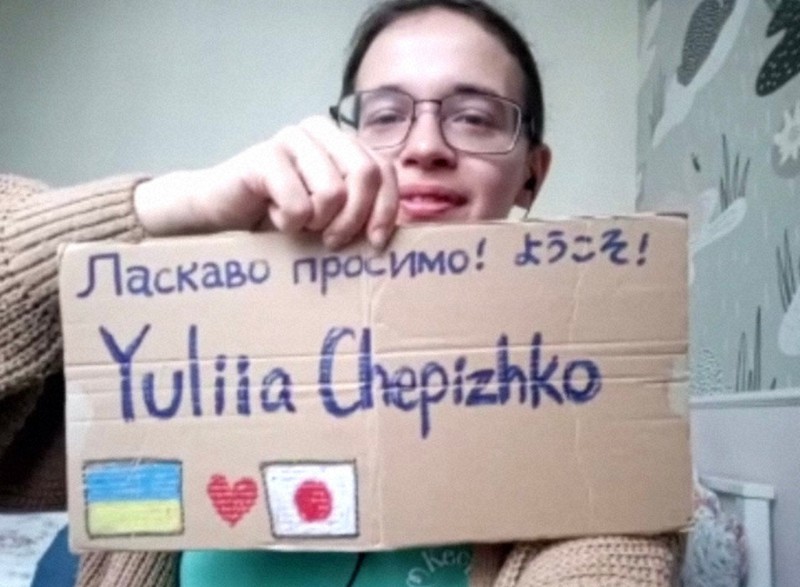 Ласкаво просимо! ようこそ!
Yuliia Chepizhko